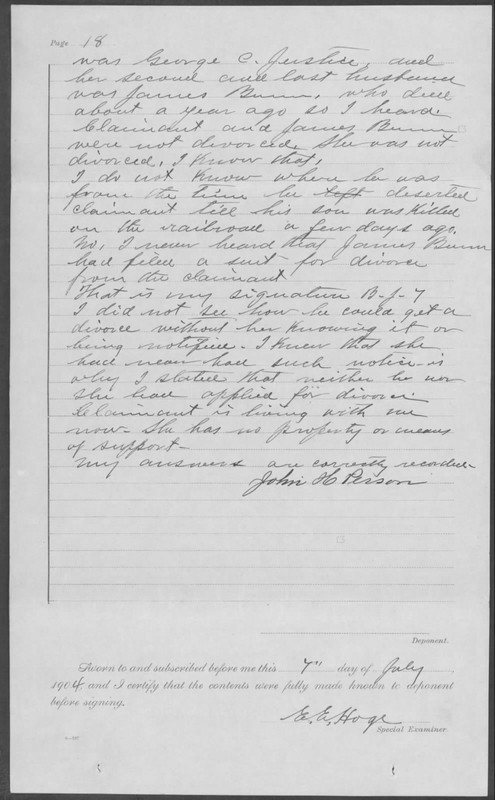 Page 18
was George C. Justice, and
her second and last husband
was James Bunn, who died
about a year ago so I heard.
Claimant and James Bunn
were not divorced. She was not
divorced. I know that.
I do not know where he was
from the time he left deserted
claimant till his son was killed
on the railroad a few days ago.
No, I never heard that James Bunn
had filed a suit for divorce
from the claimant
That is my signature B-J-7
I did not see how he could get a
divorce without her knowing it or
being notified. I knew that she
had never had such notice is
why I stated that neither he nor
she had applied for divorce.
Claimant is living with me
now. She has no property or means
of support-
My answers are correctly recorded.
John H Person
Deponent.
Sworn to and subscribed before me this 7" day of July
1904, and I certify that the contents were fully made known to deponent
before signing.
E. E. Hoge
Special Examiner.